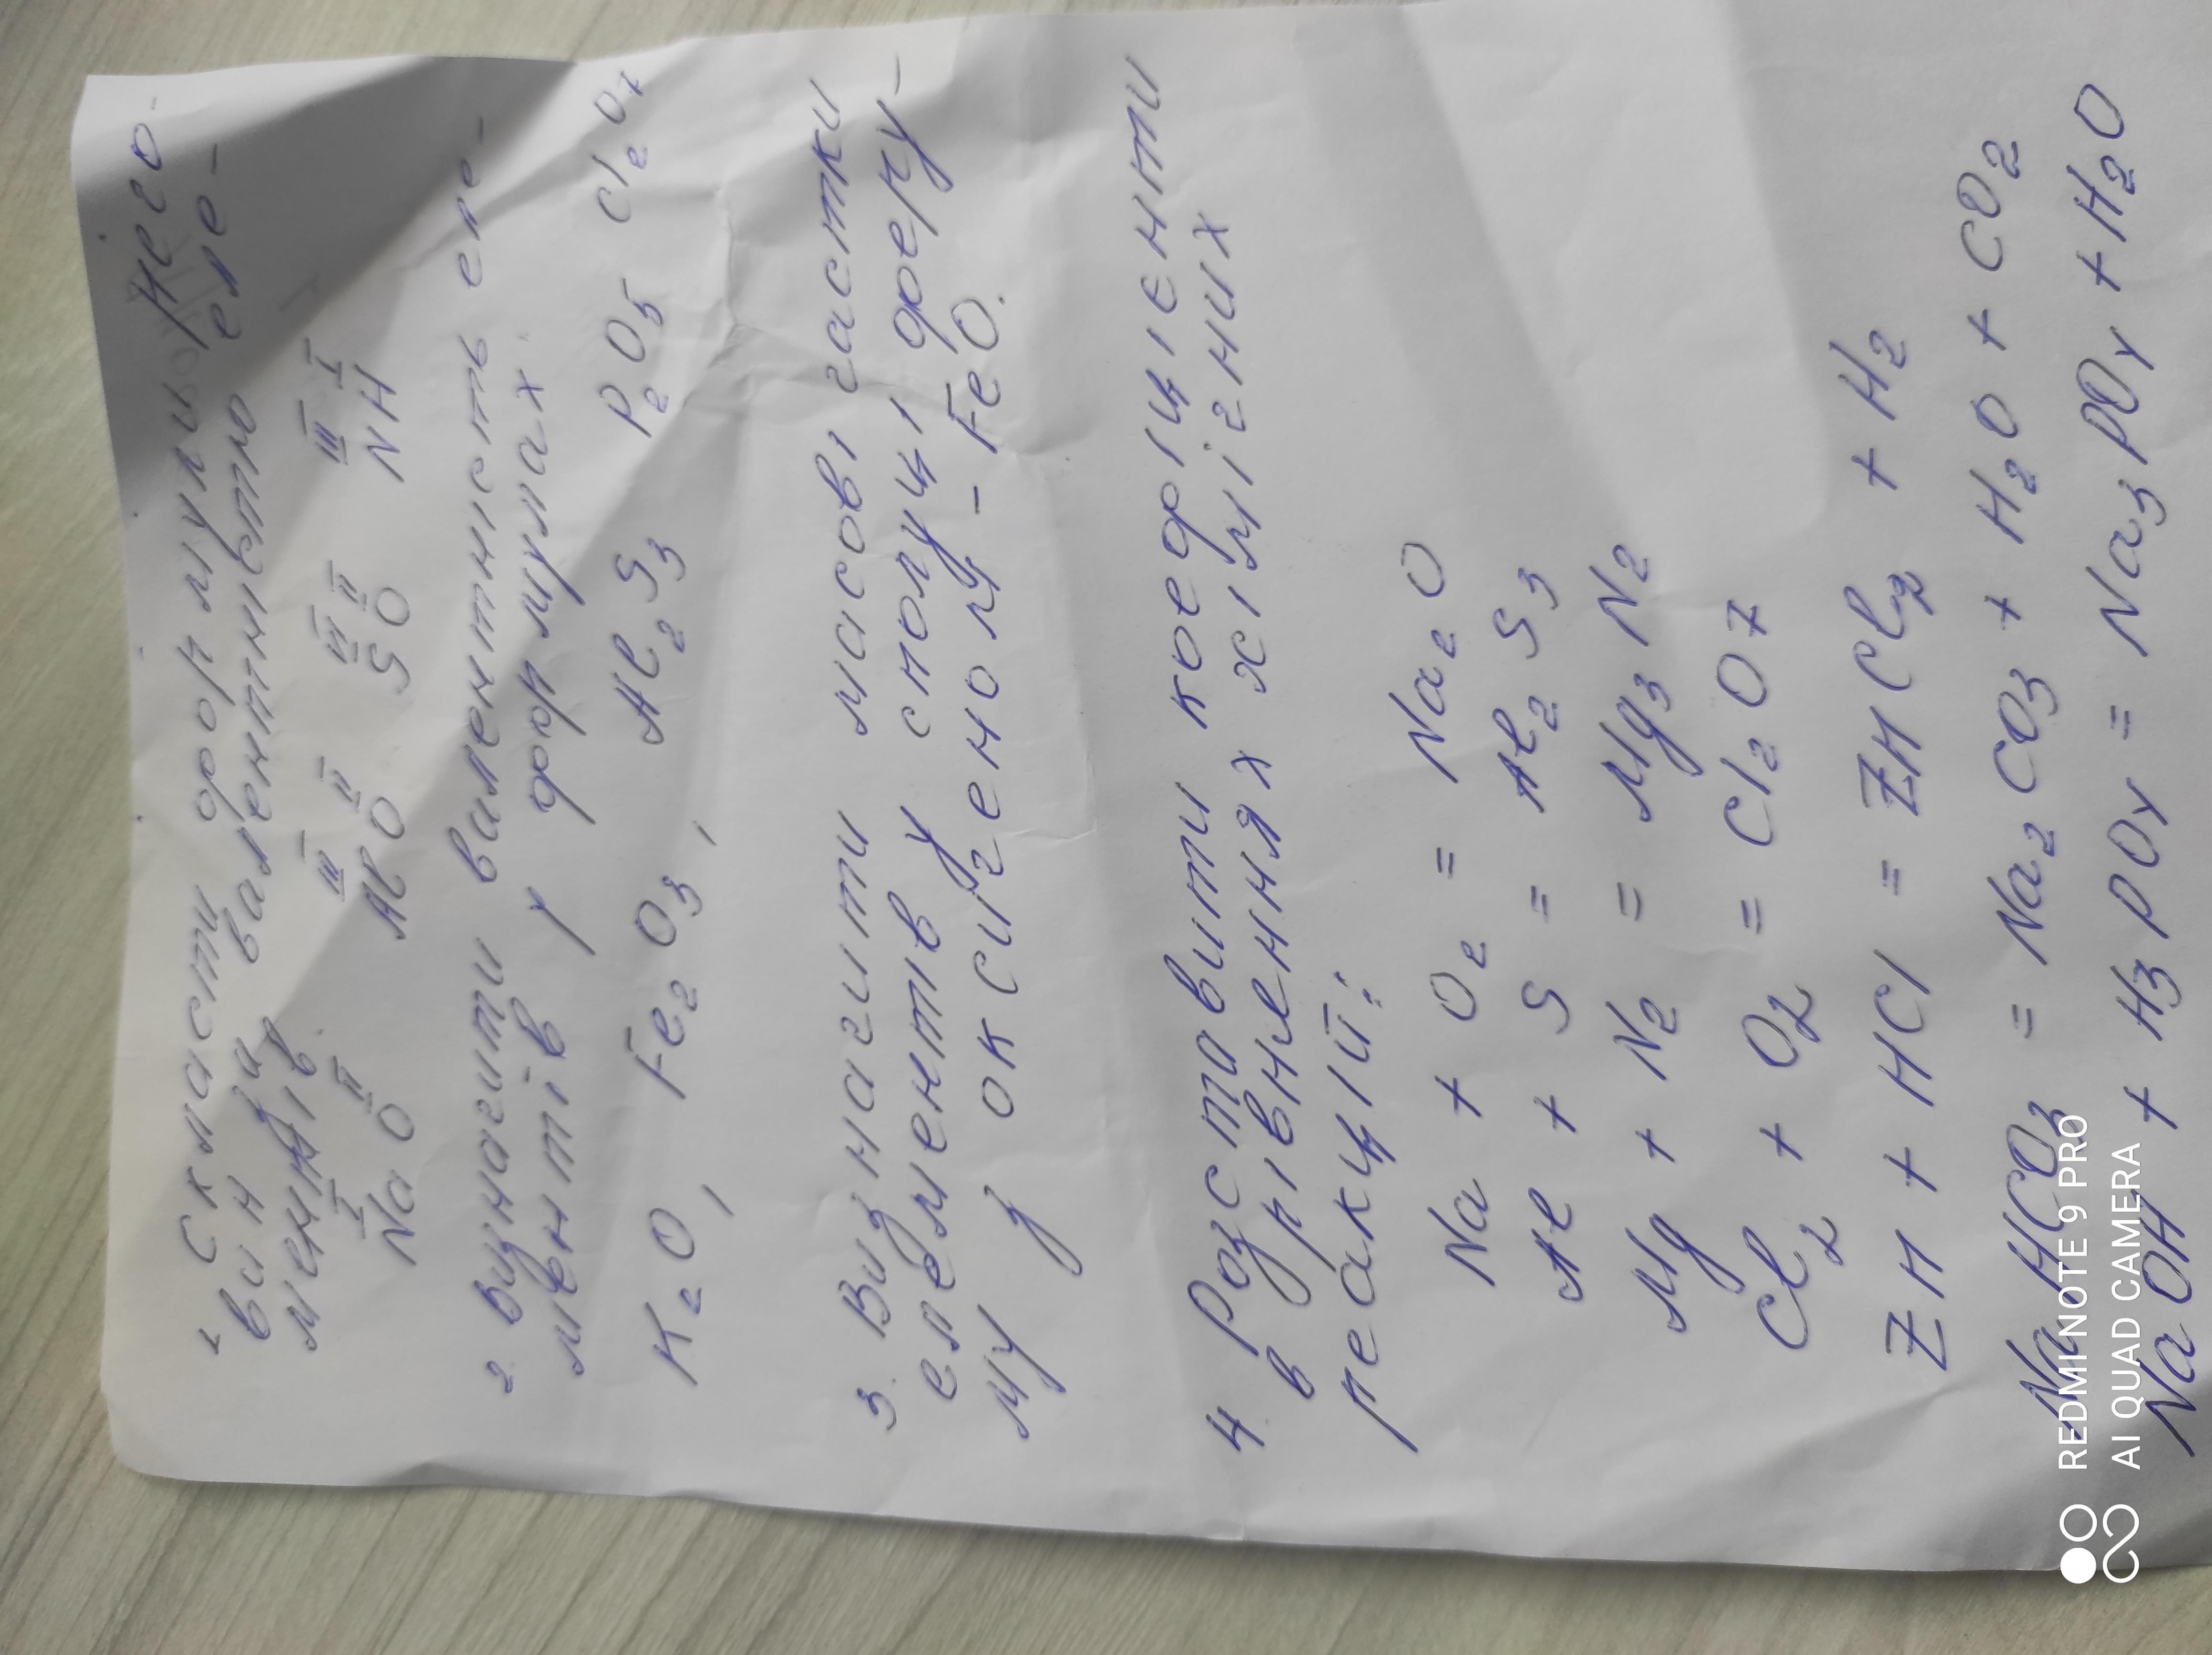 1 Скласти формули
вин за валентністю еле-
ментів.
I II III II VI II III I
Na O Al O S O N H
2. Визначити валентність еле-
ментів у формулах.
K2O, Fe2O3, Al2S3 P2O5 Cl2O7
3. Визначити масові частки
елементів у сполуці феру-
му з оксигеном - FeO.
4. Розставити коефіцієнти
в рівненнях хімічних
реакцій:
Na + O2 = Na2O
Al + S = Al2S3
Mg + N2 = Mg3N2
Cl2 + O2 = Cl2O7
ZH + HCl = ZHCl2 + H2
NaHCO3 = Na2CO3 + H2O + CO2
NaOH + H3PO4 = Na3PO4 + H2O
REDMI NOTE 9 PRO
AI QUAD CAMERA